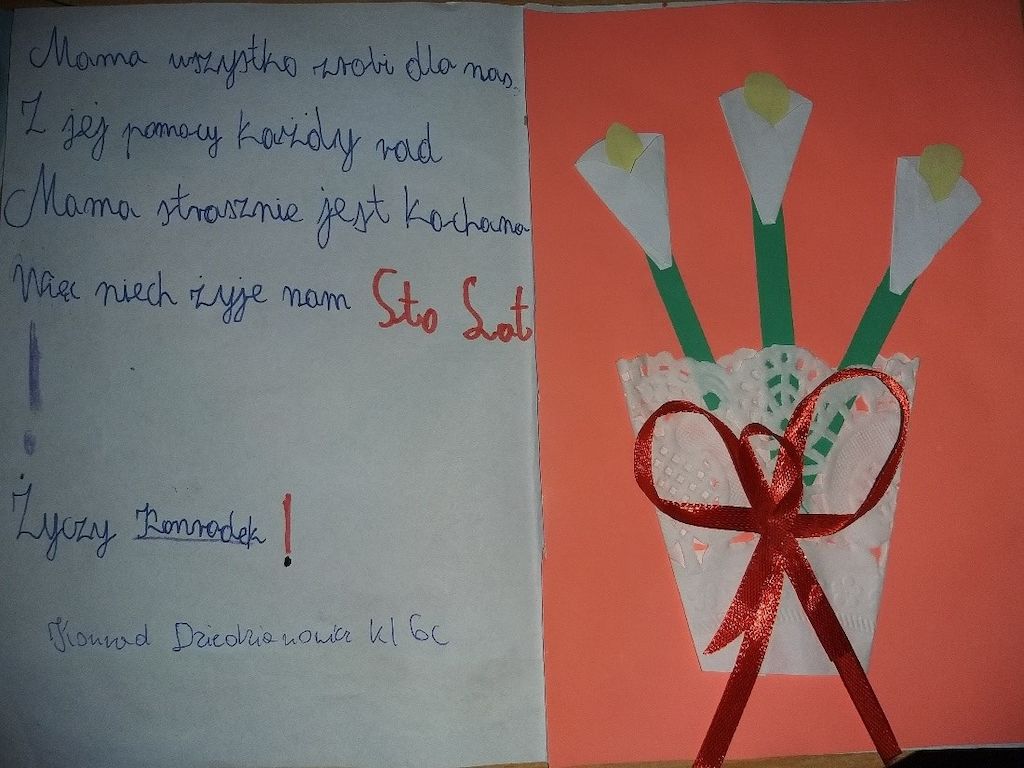 Mama wszystko zrobi dla nas.
Z jej pomocy każdy rad
Mama strasznie jest kochana
Więc niech żyje nam Sto Lat
!
Życzy Konradek!
Konrad Dziedzianowicz kl 6c